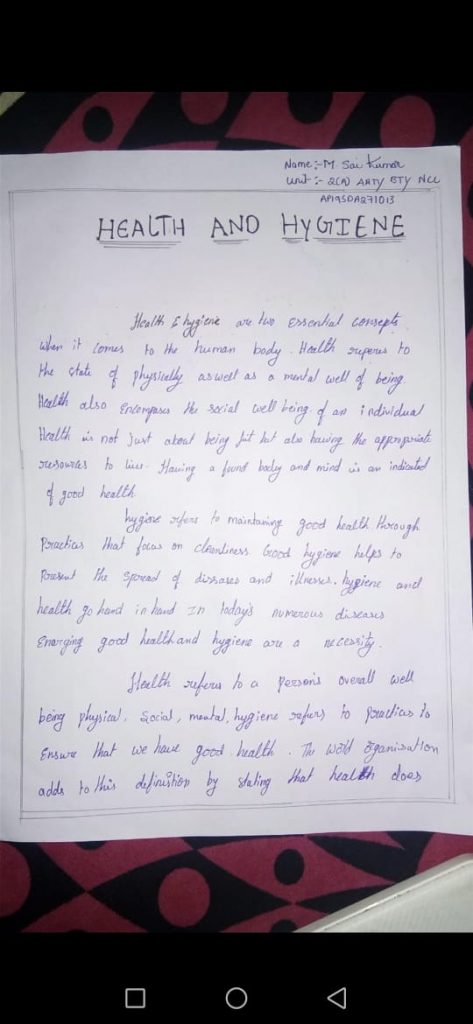 Name:- M Sai Kumar
Unit:- 2(A) ARTY BTY NCC
AP19SDA271013
HEALTH AND HYGIENE
Health & hygiene are two essential consepts
when it comes to the human body. Health referes to
the state of physically aswell as a mental well of being.
Health also Encompases the social well being of an individual
Health is not Just about being fit but also having the appropriate
resources to live. Having a found body and mind is an indicated
of good health
hygiene refers to maintaining good health through
Practices that focus on cleanliness Good hygiene helps to
Present the spread of dissases and illnesses. hygiene and
health go hand in hand In today's numerous diseases
Enarging good health and hygiene are a necessity.
Health referes to a person's overall well
being physical, Social, mental, hygiene refers to practices to
Ensure that we have good health. The world Oganisation
adds to this definistion by stating that health does